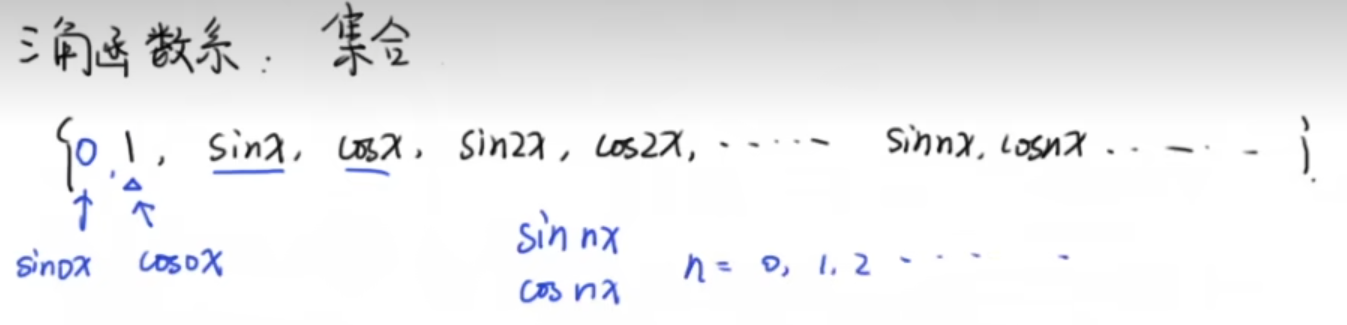 三角函数系：集合
{0, 1, sinx, cosx, sin2x, cos2x, ······ sinnx, cosnx ······}.
sin0x cos0x
sin nx
cos nx n = 0, 1, 2 ······